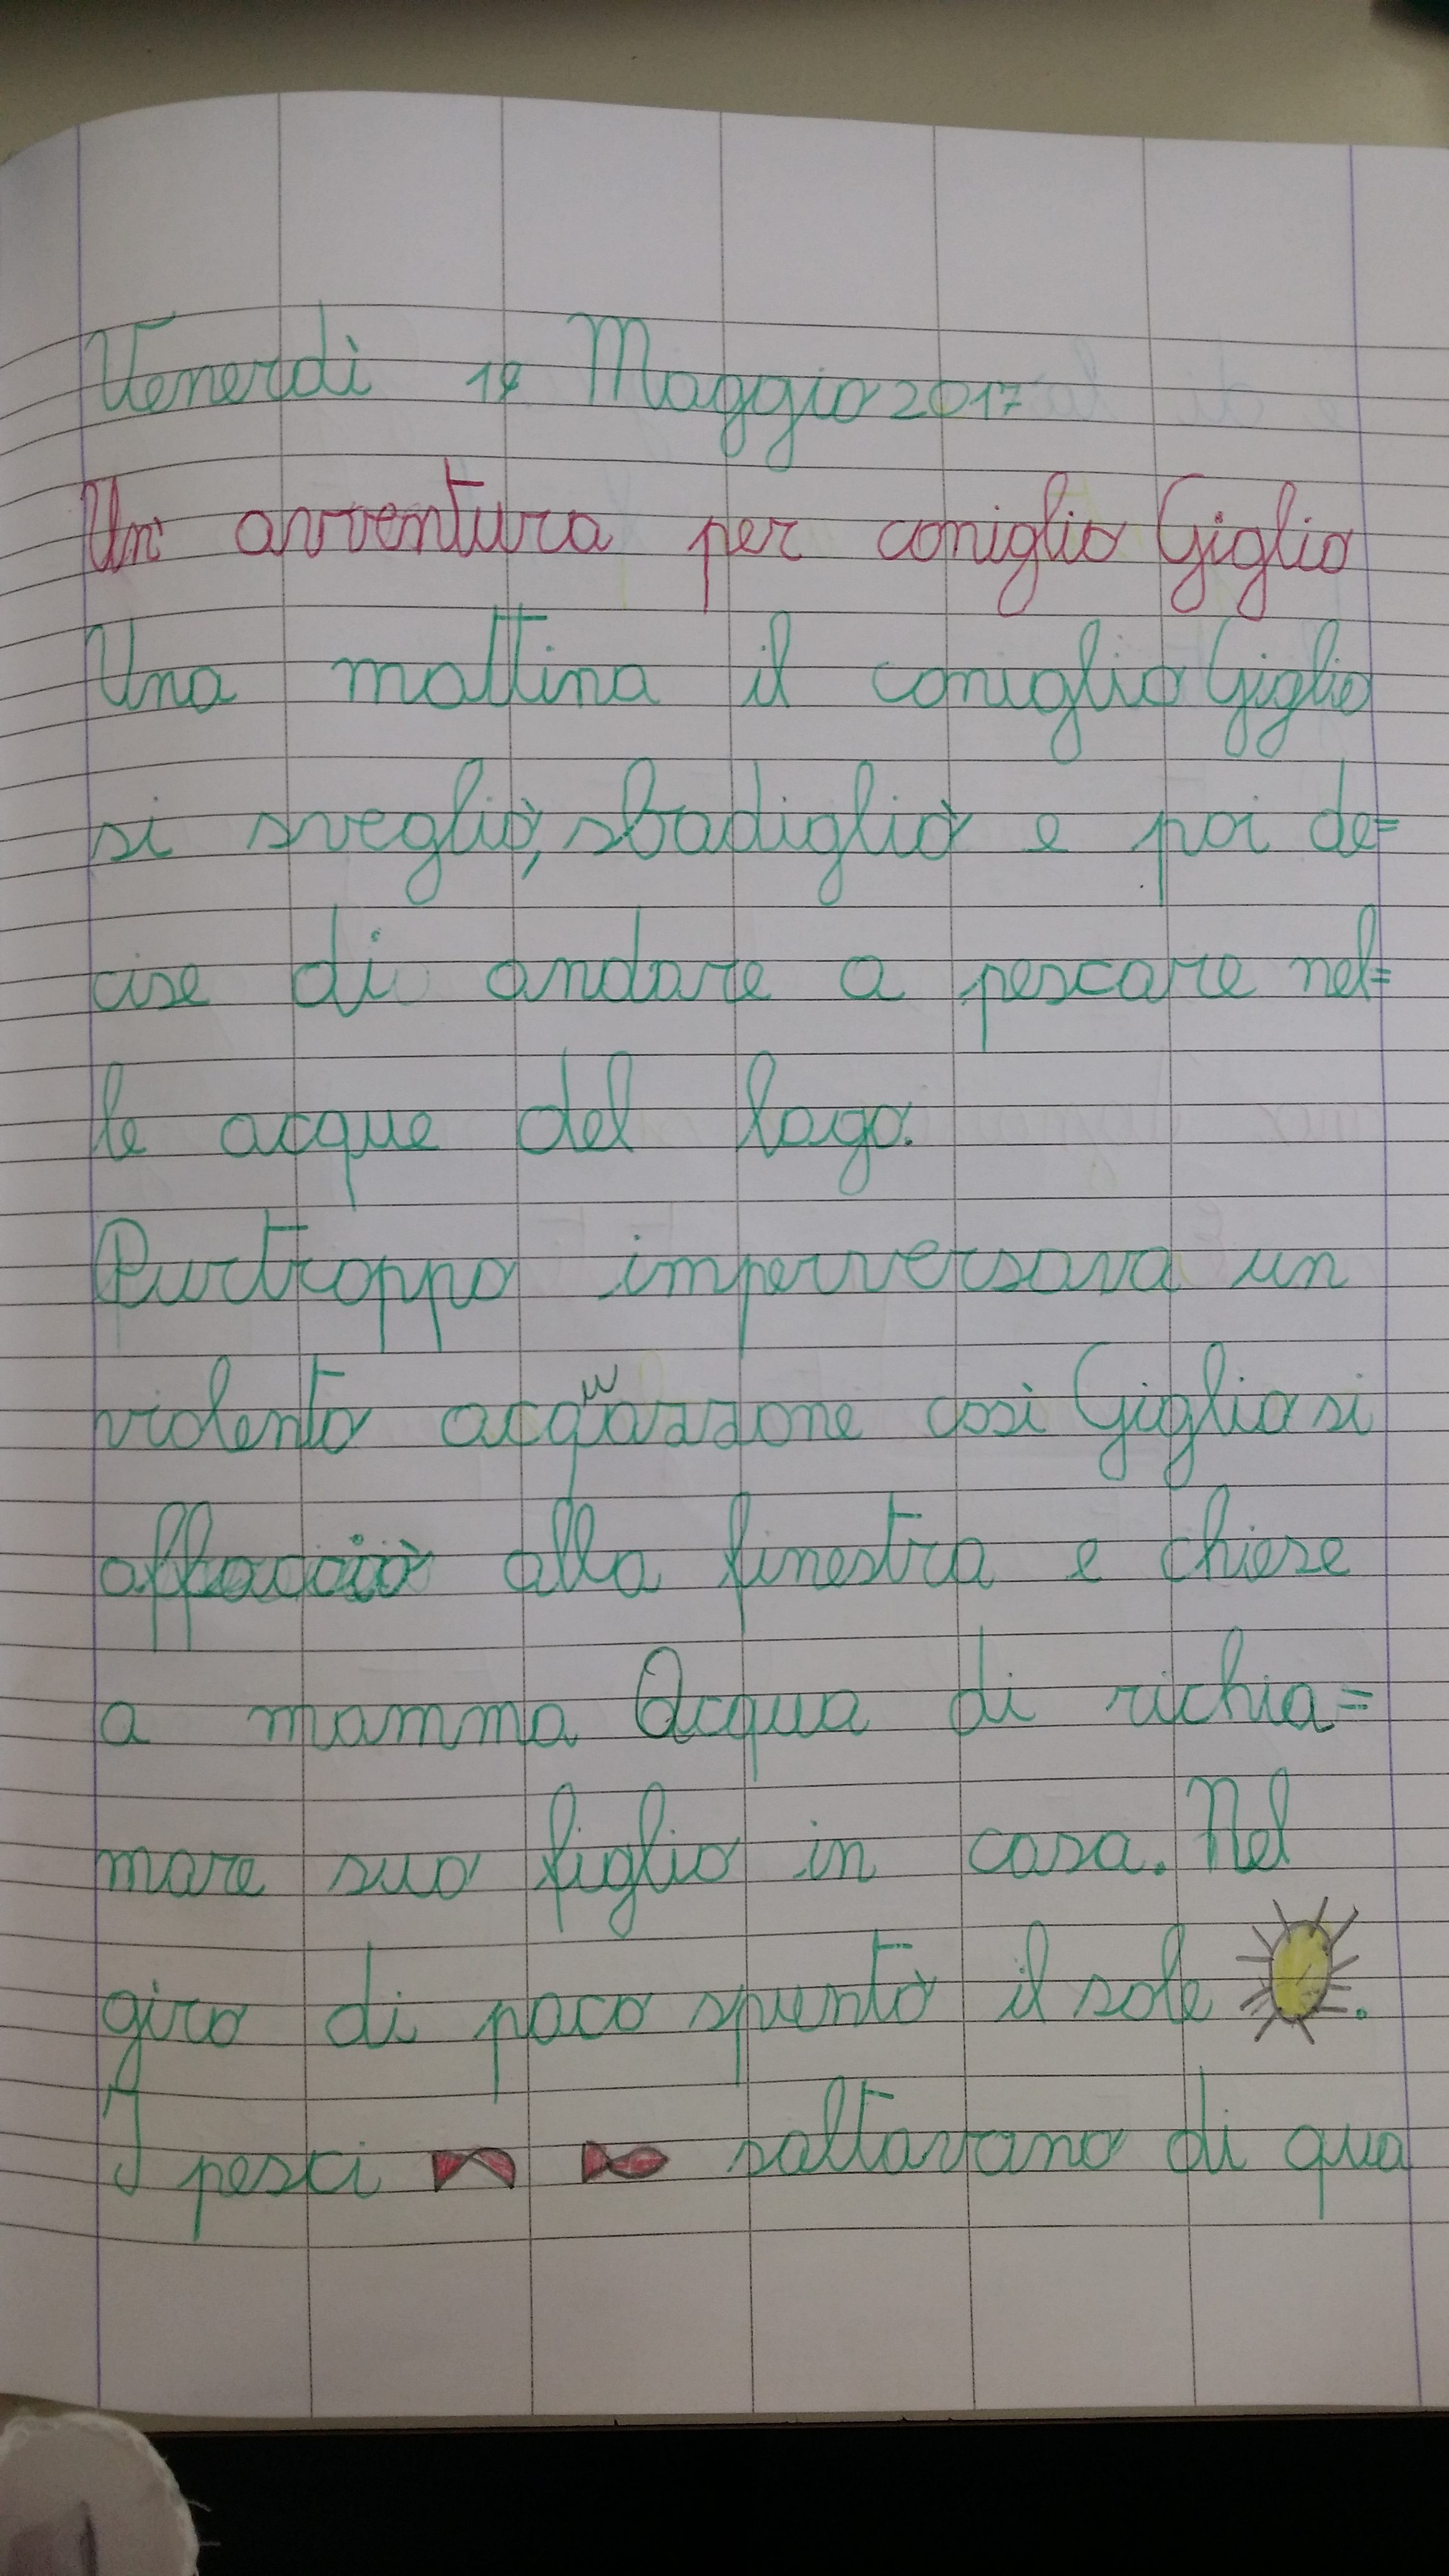 Venerdì 19 Maggio 2017
Un' avventura per coniglio Giglio
Una mattina il coniglio Giglio
si svegliò, sbadigliò e poi de=
cise di andare a pescare nel=
le acque del lago.
Purtroppo imperversava un
violento acquazzone così Giglio si
affacciò alla finestra e chiese
a mamma Acqua di richia=
mare suo figlio in casa. Nel
giro di poco spuntò il sole .
I pesci saltavano di qua